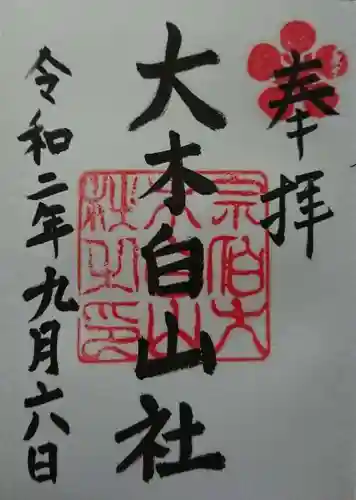 奉拝
大木白山社
令和二年九月六日